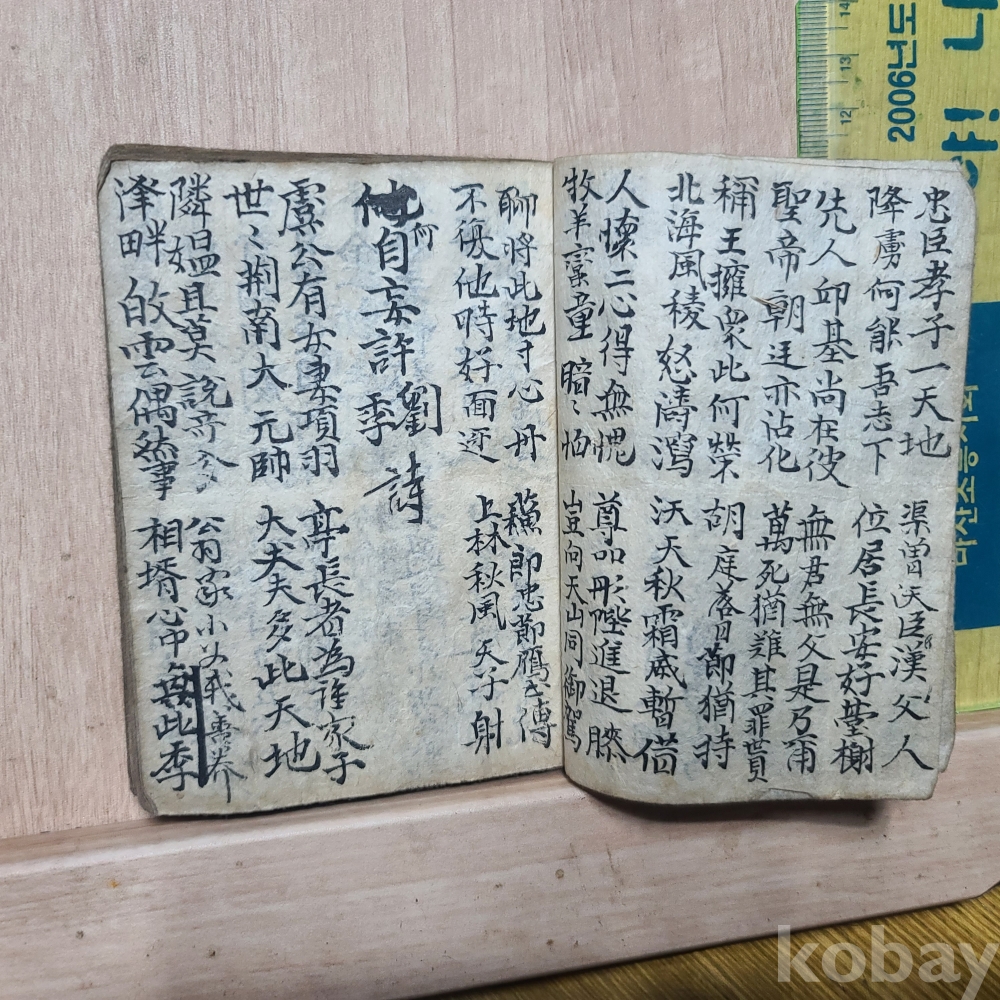 忠臣孝子一天地 渠曾沃臣漢父人
降虜何能吾志下 位居長安好臺榭
先人邱基尚在彼 無君無父是乃甭
聖帝朝廷亦沾化 萬死猶難其罪貰
稱王擁衆此何榮 胡庭落日節猶持
北海風稜怒濤瀉 沃天秋霜威暫借
人懷二心得無愧 尊品彤陛進退膝
牧羊童暗〻怕 豈向天山同御駕
聊將此地寸心丹 蘇郎忠節鴈〻傳
不復他時好面逆 上林秋風天子射
何自妄許劉季 詩
虞公有女妻項羽 亭長者爲誰家子
世〻荊南大元帥 大夫夫多此天地
隣媼且莫說奇
翁家小女
澤畔白雲偶然事 相壻心中無此季
2006년도
마산소방
12
13
14
kobay